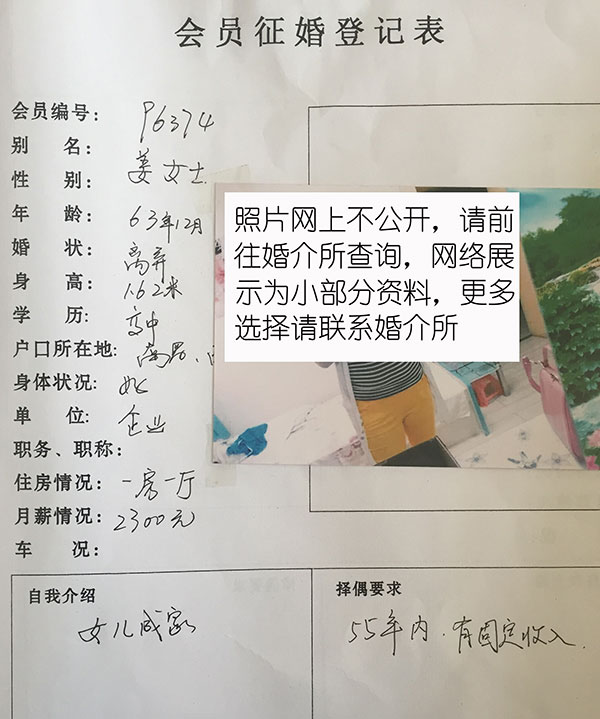 会员征婚登记表
会员编号: P6374
别 名: 姜女士
性 别:
年 龄: 63年12月
婚 状: 离异
身 高: 1.62米
学 历: 高中
户口所在地:
身体状况: 好
单 位: 企业
职务、职称:
住房情况: 一房一厅
月薪情况: 2300元
车 况:
照片网上不公开，请前
往婚介所查询，网络展
示为小部分资料，更多
选择请联系婚介所
自我介绍
女儿成家
择偶要求
55年内.有固定收入.